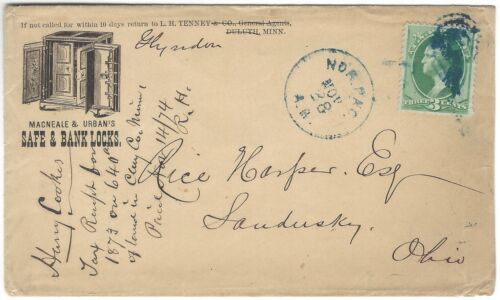 If not called for within 10 days return to L. H. TENNEY & CO., General Agents,
DULUTH, MINN.
Glyndon
MACNEALE & URBAN'S
SAFE & BANK LOCKS.
NOR. PAC.
NOV
28
A.R.
THREE 3 CENTS
Rice Harper, Esq
Sandusky,
Ohio
Harry Cookes
Tax Receipt for
1873 on 640
of land in Clay Co. Minn
Paid Jan 14/74
R. H.